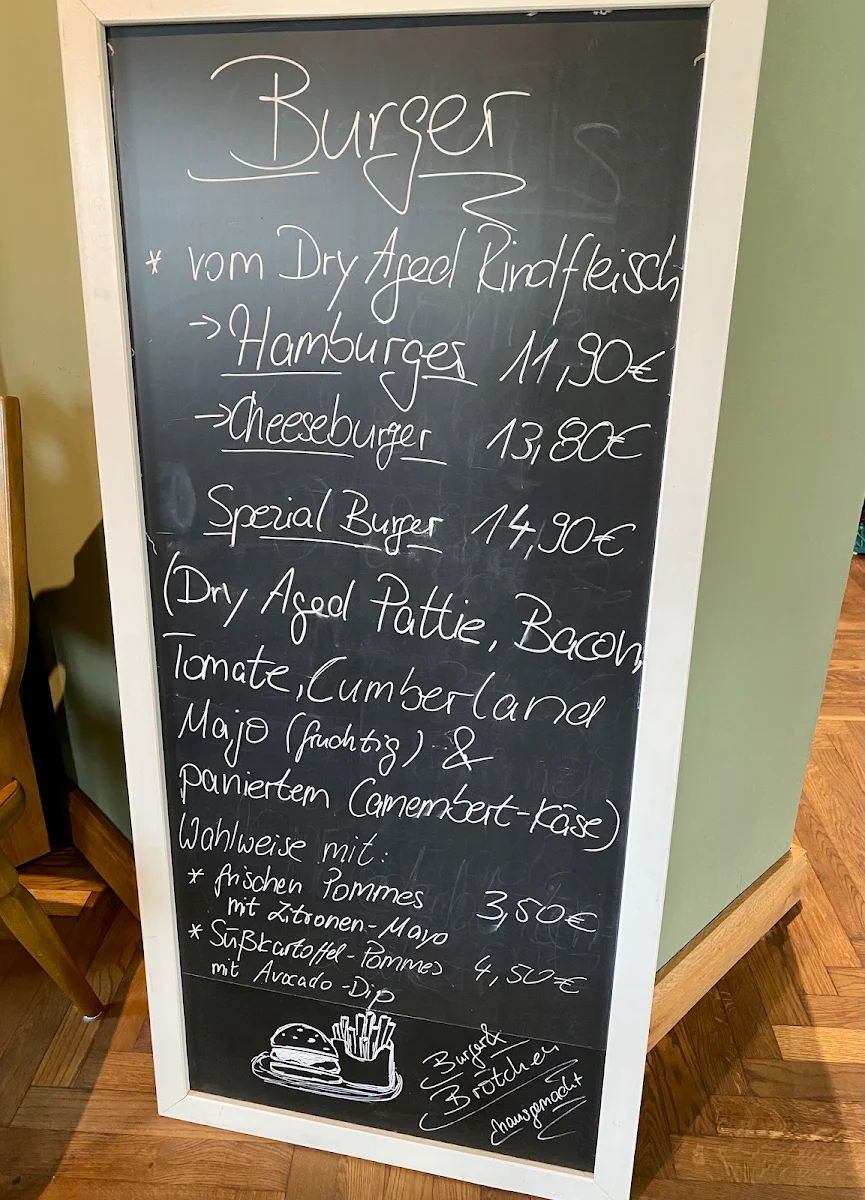 Burger
* vom Dry Aged Rindfleisch
→ Hamburger 11,90€
→ Cheeseburger 13,80€
Spezial Burger 14,90€
(Dry Aged Pattie, Bacon,
Tomate, Cumberland
Majo (fruchtig) &
paniertem Camembert-Käse)
Wahlweise mit:
* frischen Pommes 3,50€
mit Zitronen-Mayo
* Süßkartoffel-Pommes 4,50€
mit Avocado-Dip
Burger &
Brötchen
hausgemacht